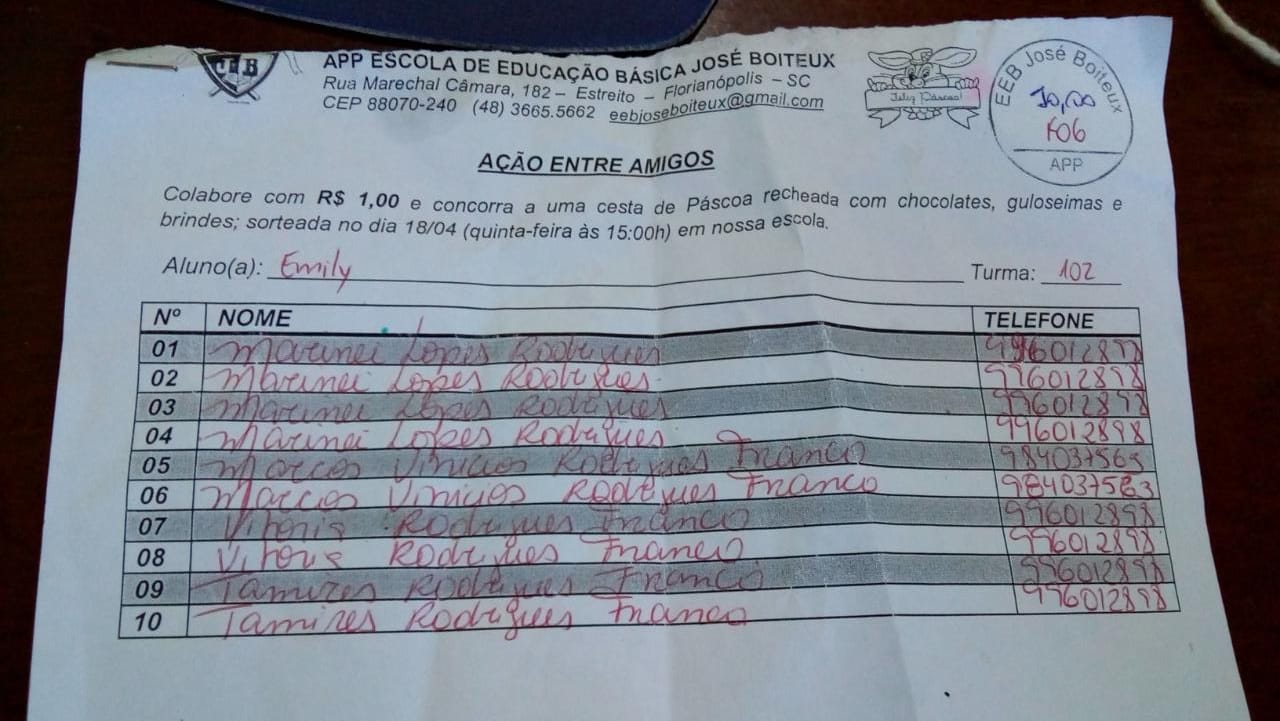 JEB
APP ESCOLA DE EDUCAÇÃO BÁSICA JOSÉ BOITEUX
Rua Marechal Câmara, 182 – Estreito – Florianópolis – SC
CEP 88070-240 (48) 3665.5662 eebjoseboiteux@gmail.com
Feliz Páscoa!
EEB José Boiteux
10,00
F06
APP
AÇÃO ENTRE AMIGOS
Colabore com R$ 1,00 e concorra a uma cesta de Páscoa recheada com chocolates, guloseimas e
brindes; sorteada no dia 18/04 (quinta-feira às 15:00h) em nossa escola.
Aluno(a): Emily Turma: 102
Nº NOME TELEFONE
01 Marinei Lopes Rodrigues 996012898
02 Marinei Lopes Rodrigues 996012898
03 Marinei Lopes Rodrigues 996012898
04 Marinei Lopes Rodrigues 996012898
05 Marcos Vinicios Rodrigues Franco 984037563
06 Marcos Vinicios Rodrigues Franco 984037563
07 Vitoria Rodrigues Franco 996012898
08 Vitoria Rodrigues Franco 996012898
09 Tamires Rodrigues Franco 996012898
10 Tamires Rodrigues Franco 996012898